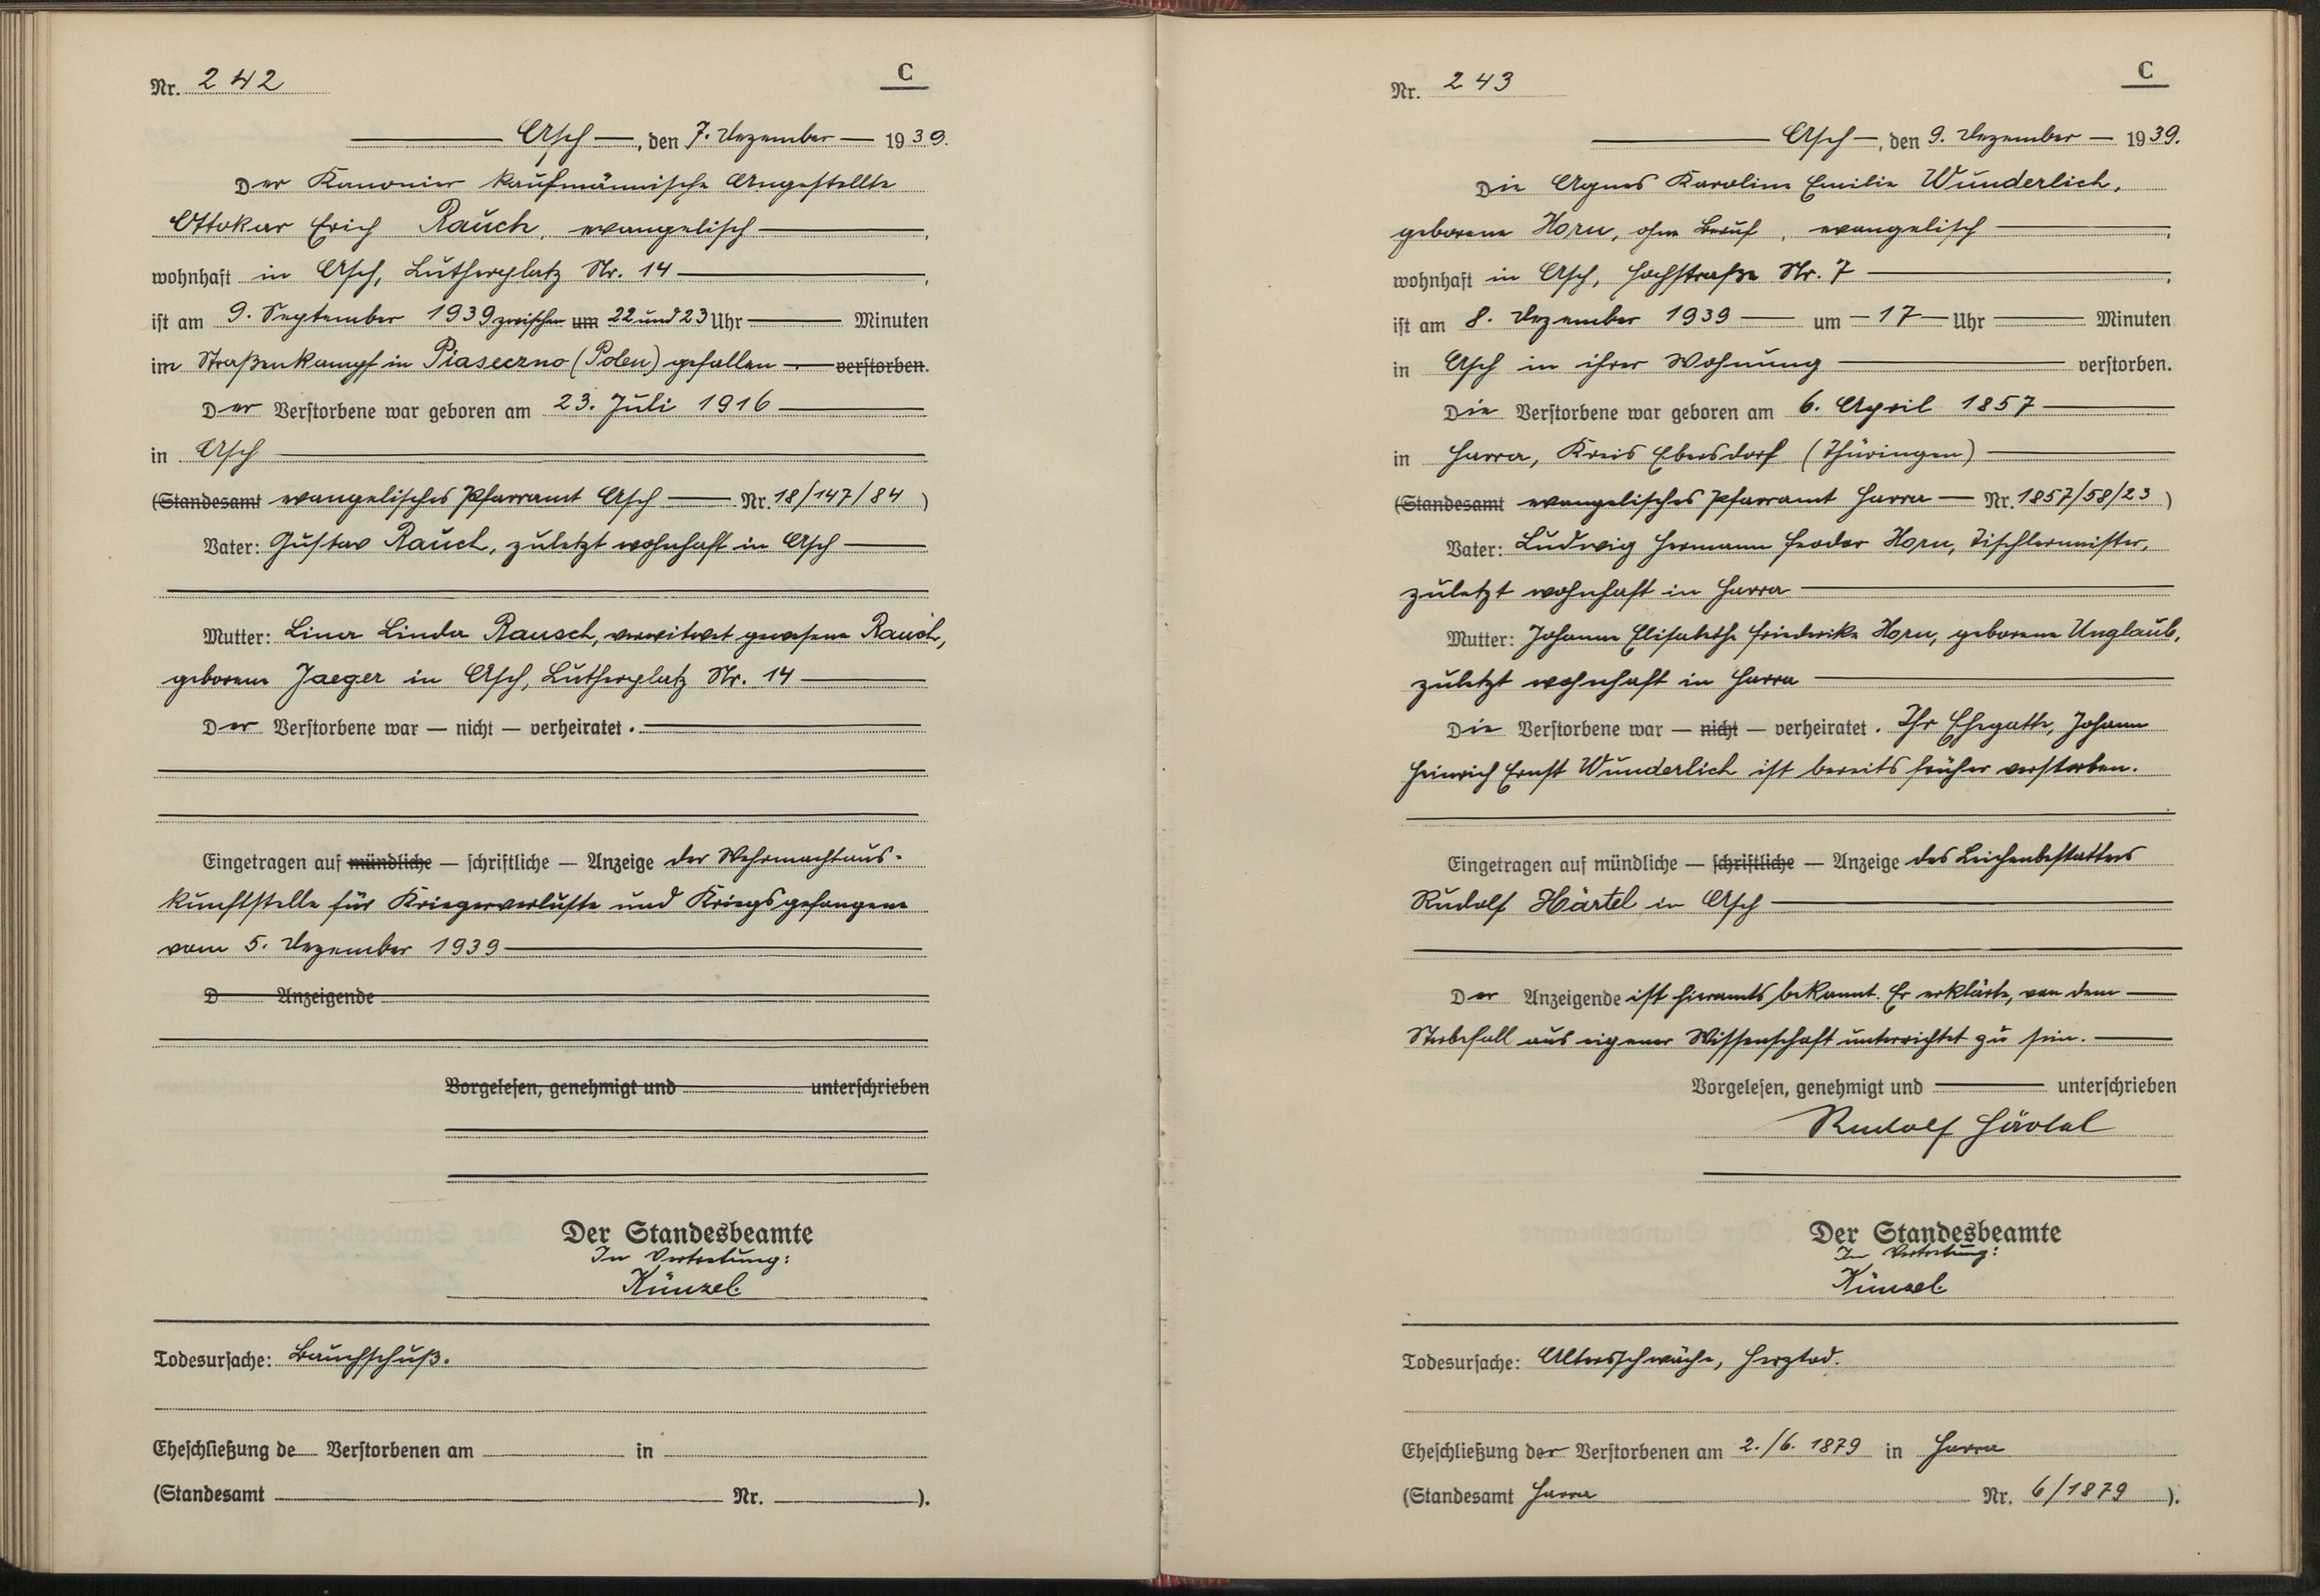 Nr. 242
C
Asch, den 7. Dezember 1939.
Der Kanonier kaufmännische Angestellte
Ottokar Erich Rauch, evangelisch,
wohnhaft in Asch, Lutherplatz Nr. 14,
ist am 9. September 1939 zwischen um 22 und 23 Uhr Minuten
im Straßenkampf in Piaseczno (Polen) gefallen verstorben.
Der Verstorbene war geboren am 23. Juli 1916
in Asch
(Standesamt evangelisches Pfarramt Asch Nr. 18/147/84)
Vater: Gustav Rauch, zuletzt wohnhaft in Asch
Mutter: Lina Linda Rausch, verwitwet gewesene Rauch,
geborene Jaeger in Asch, Lutherplatz Nr. 14
Der Verstorbene war — nicht — verheiratet.
Eingetragen auf mündliche — schriftliche — Anzeige der Wehrmachtaus-
kunftstelle für Kriegerverluste und Kriegsgefangene
vom 5. Dezember 1939
D Anzeigende
Vorgelesen, genehmigt und unterschrieben
Der Standesbeamte
In Vertretung:
Künzel.
Todesursache: Bauchschuß.
Eheschließung de Verstorbenen am in
(Standesamt Nr. ).
Nr. 243
C
Asch, den 9. Dezember 1939.
Die Agnes Karoline Emilie Wunderlich,
geborene Horn, ohne Beruf, evangelisch,
wohnhaft in Asch, Hochstraße Nr. 7,
ist am 8. Dezember 1939 um 17 Uhr Minuten
in Asch in ihrer Wohnung verstorben.
Die Verstorbene war geboren am 6. April 1857
in Harra, Kreis Ebersdorf (Thüringen)
(Standesamt evangelisches Pfarramt Harra Nr. 1857/58/23)
Vater: Ludwig Hermann Feodor Horn, Tischlermeister,
zuletzt wohnhaft in Harra
Mutter: Johanne Elisabethe Friederike Horn, geborene Unglaub,
zuletzt wohnhaft in Harra
Die Verstorbene war — nicht — verheiratet. Ihr Ehegatte, Johann
Heinrich Ernst Wunderlich ist bereits früher verstorben.
Eingetragen auf mündliche — schriftliche — Anzeige des Leichenbestatters
Rudolf Härtel in Asch
Der Anzeigende ist hieramts bekannt. Er erklärte, von dem
Sterbefall aus eigener Wissenschaft unterrichtet zu sein.
Vorgelesen, genehmigt und unterschrieben
Rudolf Härtel
Der Standesbeamte
In Vertretung:
Künzel.
Todesursache: Altersschwäche, Herztod.
Eheschließung der Verstorbenen am 2./6. 1879 in Harra
(Standesamt Harra Nr. 6/1879).